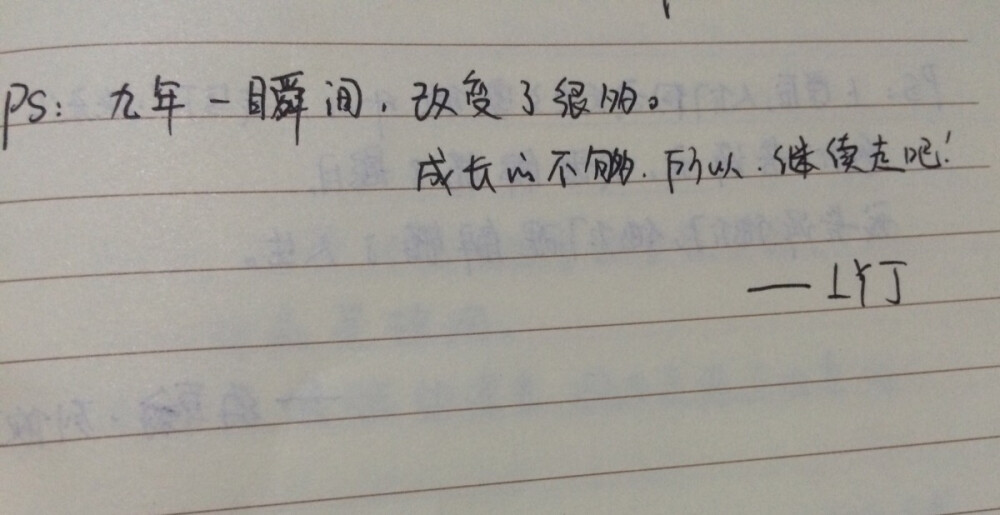 PS: 九年一瞬间，改变了很多。
成长的不够，所以，继续走吧！